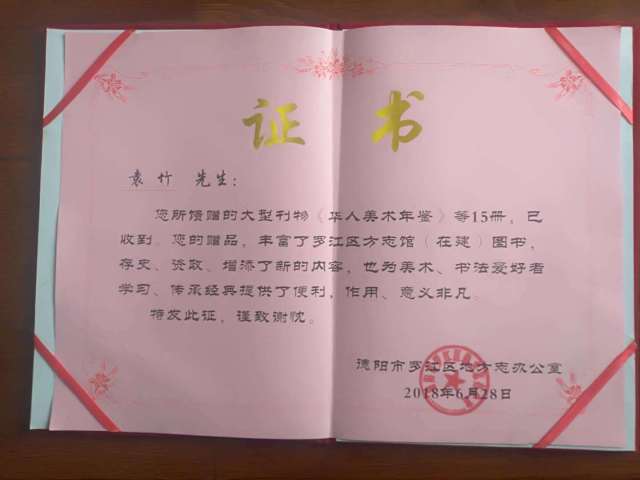 证 书
袁竹 先生：
您所馈赠的大型刊物《华人美术年鉴》等15册，已
收到。您的赠品，丰富了罗江区方志馆（在建）图书，
存史、资政、增添了新的内容，也为美术、书法爱好者
学习、传承经典提供了便利，作用、意义非凡。
特发此证，谨致谢忱。
德阳市罗江区地方志办公室
2018年6月28日